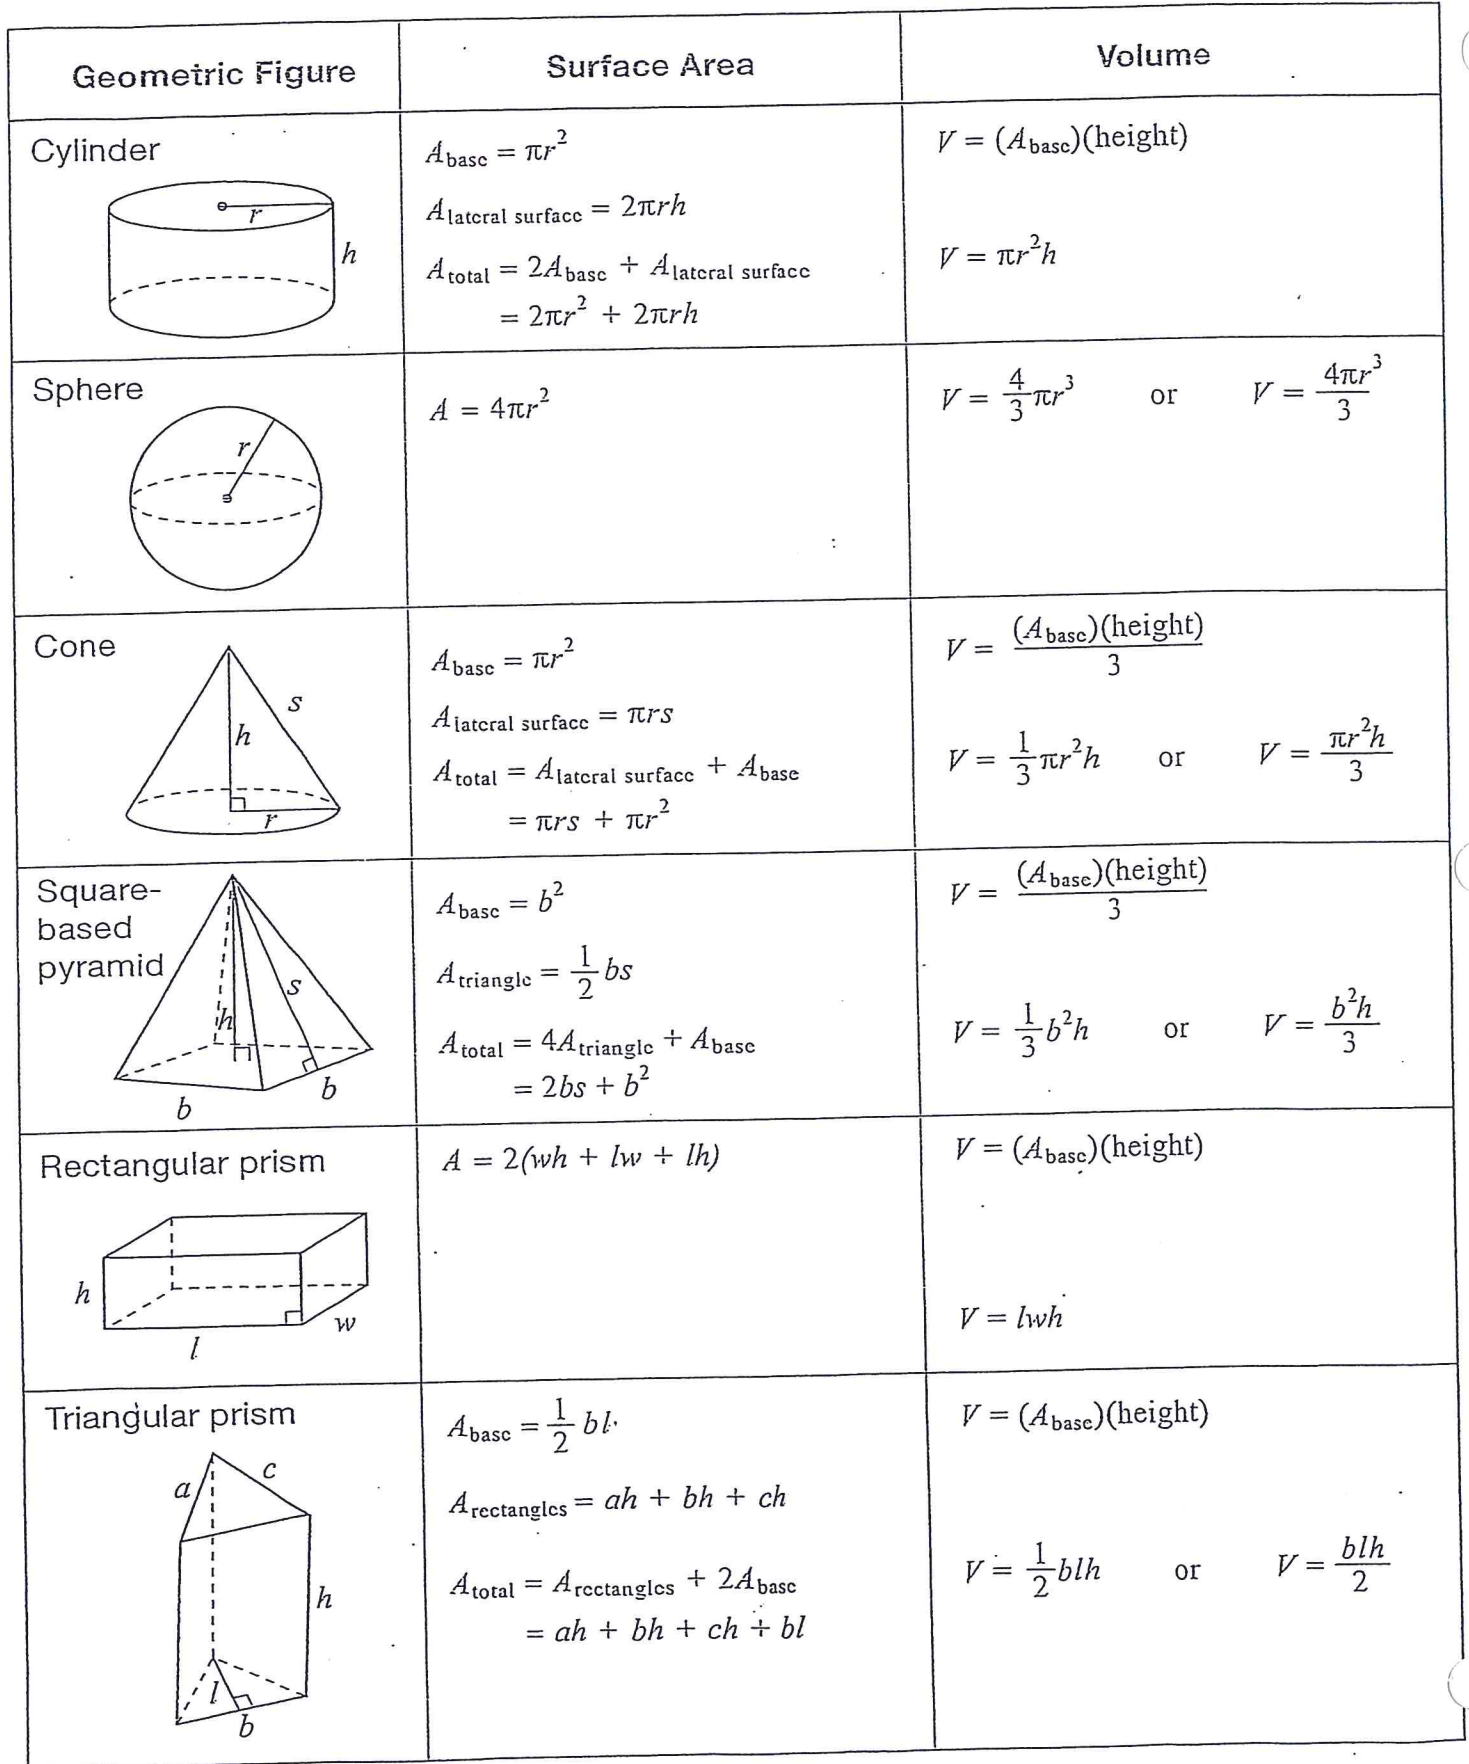 Geometric Figure Surface Area Volume
Cylinder
r
h
A base = πr²
A lateral surface = 2πrh
A total = 2A base + A lateral surface
= 2πr² + 2πrh
V = (A base)(height)
V = πr²h
Sphere
r
A = 4πr²
V = 4/3 πr³ or V = 4πr³/3
Cone
s
h
r
A base = πr²
A lateral surface = πrs
A total = A lateral surface + A base
= πrs + πr²
V = (A base)(height)/3
V = 1/3 πr²h or V = πr²h/3
Square-
based
pyramid
s
h
b
b
A base = b²
A triangle = 1/2 bs
A total = 4A triangle + A base
= 2bs + b²
V = (A base)(height)/3
V = 1/3 b²h or V = b²h/3
Rectangular prism
h
w
l
A = 2(wh + lw + lh)
V = (A base)(height)
V = lwh
Triangular prism
a
c
h
l
b
A base = 1/2 bl
A rectangles = ah + bh + ch
A total = A rectangles + 2A base
= ah + bh + ch + bl
V = (A base)(height)
V = 1/2 blh or V = blh/2